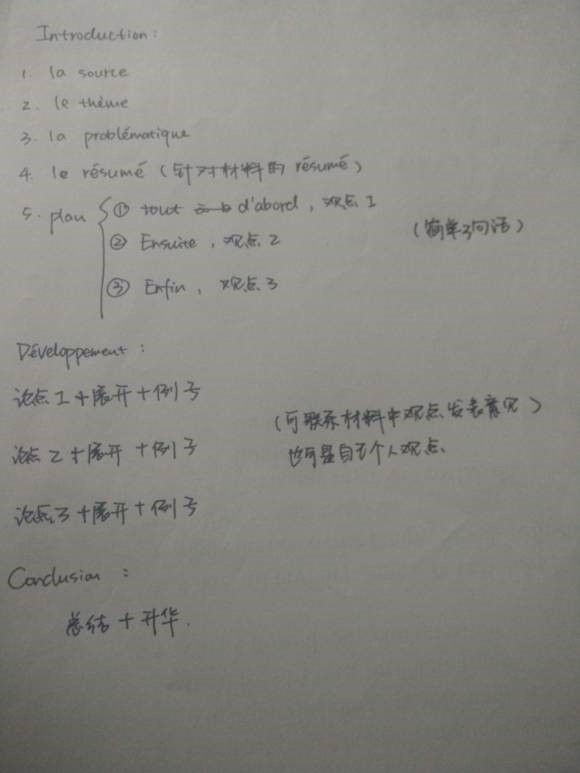 Introduction :
1. la source
2. le thème
3. la problématique
4. le résumé (针对材料的 résumé)
5. plan
① tout d'abord, 观点1
② Ensuite, 观点2
(简单3句话)
③ Enfin, 观点3
Développement :
论点1+展开+例子
(可联系材料中观点发表意见)
论点2+展开+例子
也可是自己个人观点.
论点3+展开+例子
Conclusion :
总结+升华.